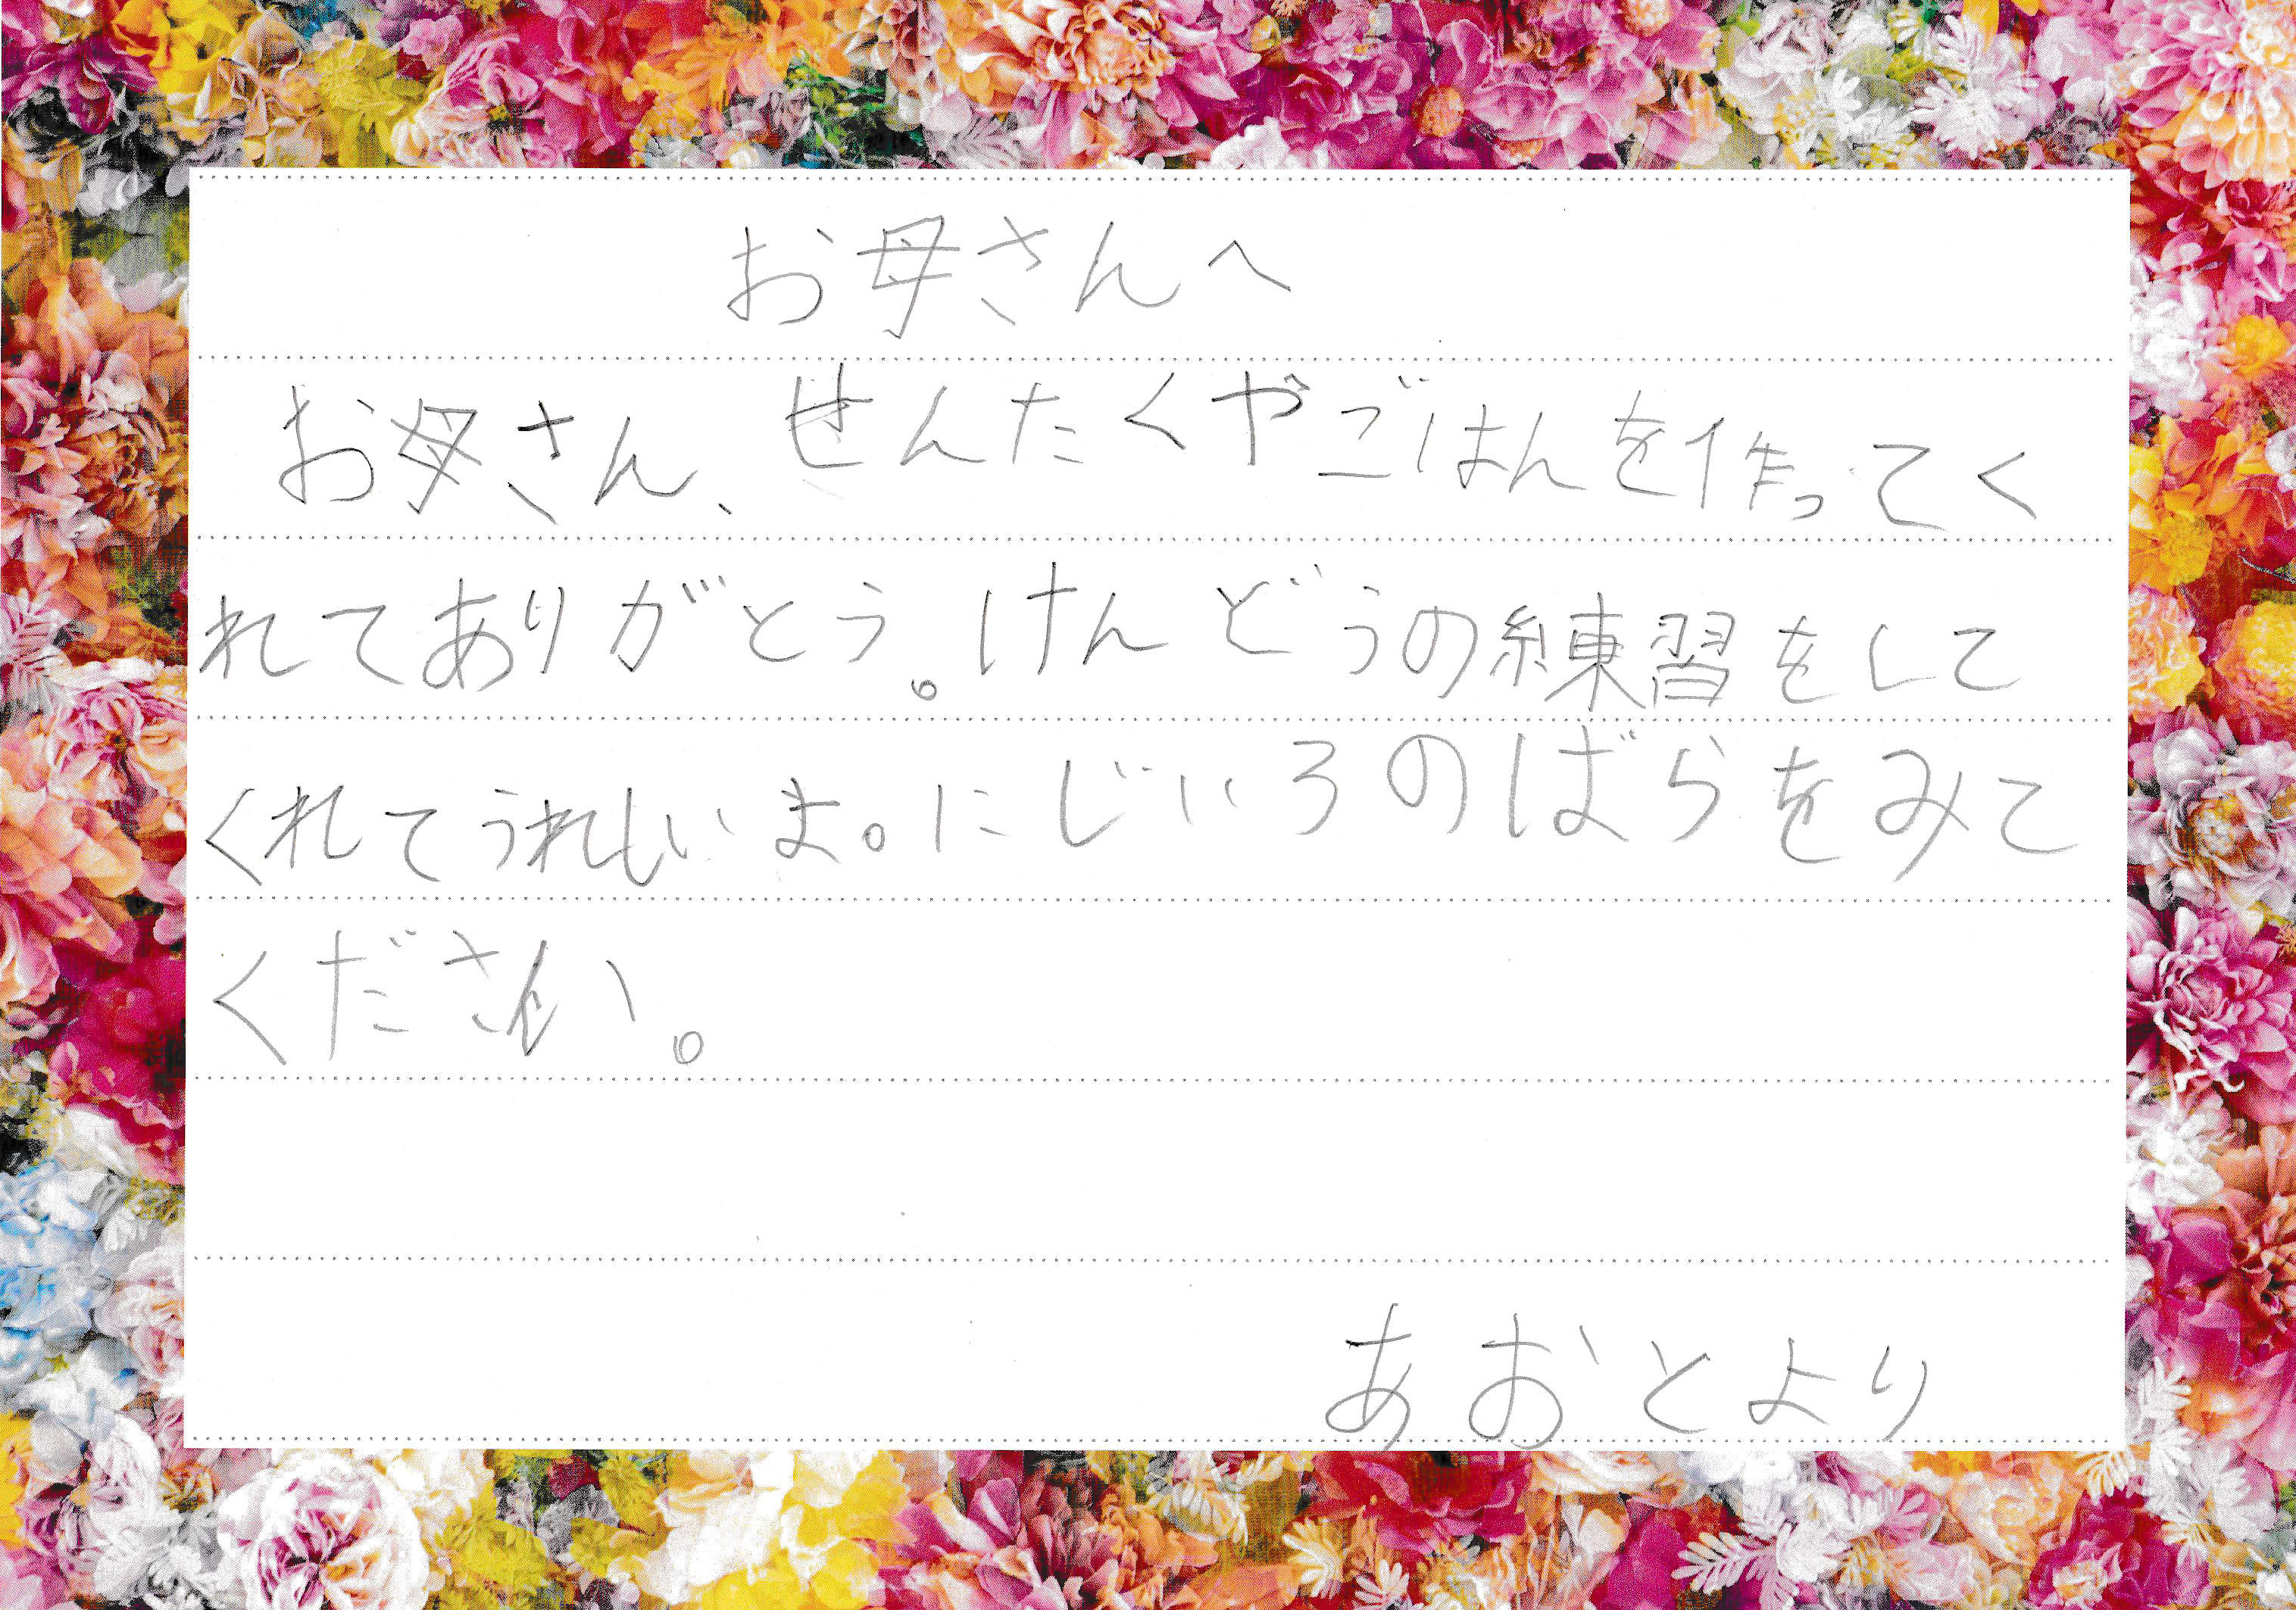 お母さんへ
お母さん、せんたくやごはんを作ってく
れてありがとう。けんどうの練習をして
くれてうれしいま。にじいろのばらをみて
ください。
あおとより